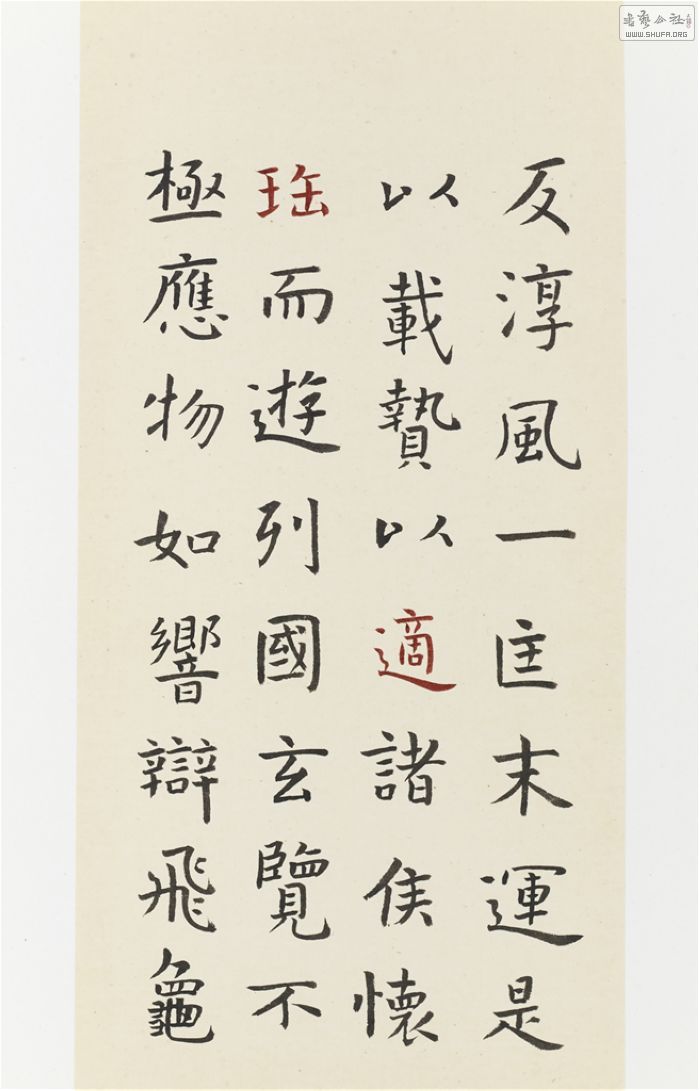 反淳風一匡末運是
以載贄以適諸侯懷
珤而遊列國玄覽不
極應物如響辯飛龜
書藝公社
WWW.SHUFA.ORG